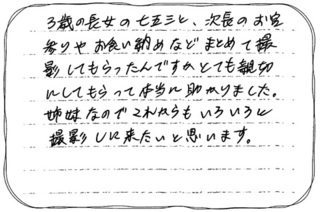 3歳の長女の七五三と、次長のお宮
参りやお食い納めなどまとめて撮
影してもらったんですがとても親切
にしてもらって本当に助かりました。
姉妹なのでこれからもいろいろと
撮影しに来たいと思います。